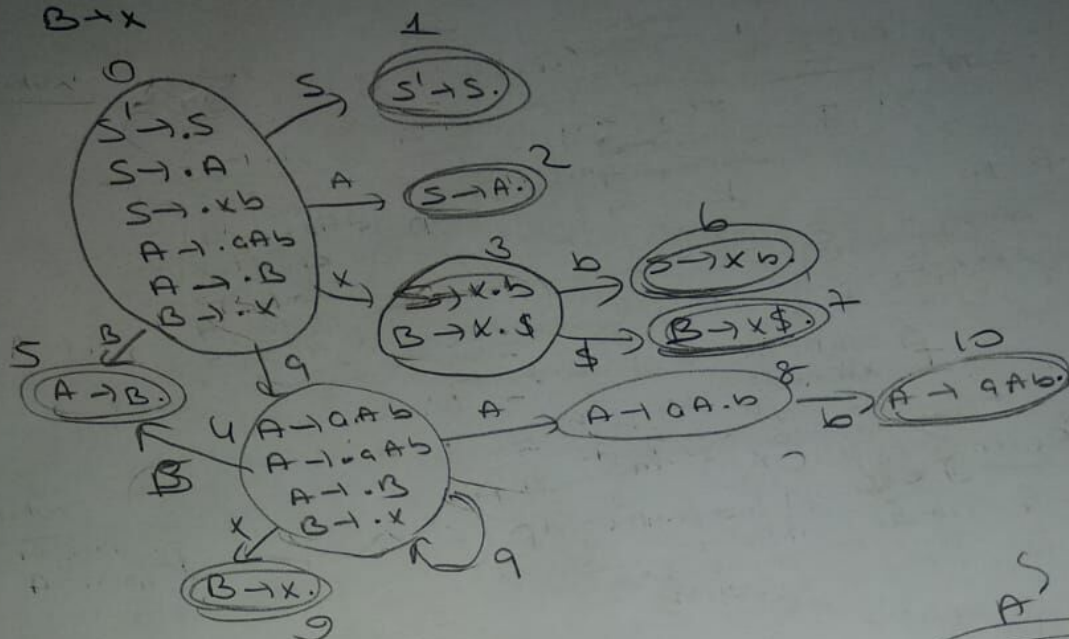 B→x
0
S'→.S
S→.A
S→.xb
A→.aAb
A→.B
B→.x
S
1
S'→S.
A
S→A.
2
x
3
S→x.b
B→x.$
b
6
S→xb.
$
B→x$.
7
B
5
A→B.
a
4
A→a.Ab
A→.aAb
A→.B
B→.x
B
A
8
A→aA.b
b
10
A→aAb.
x
B→x.
9
a
S
A